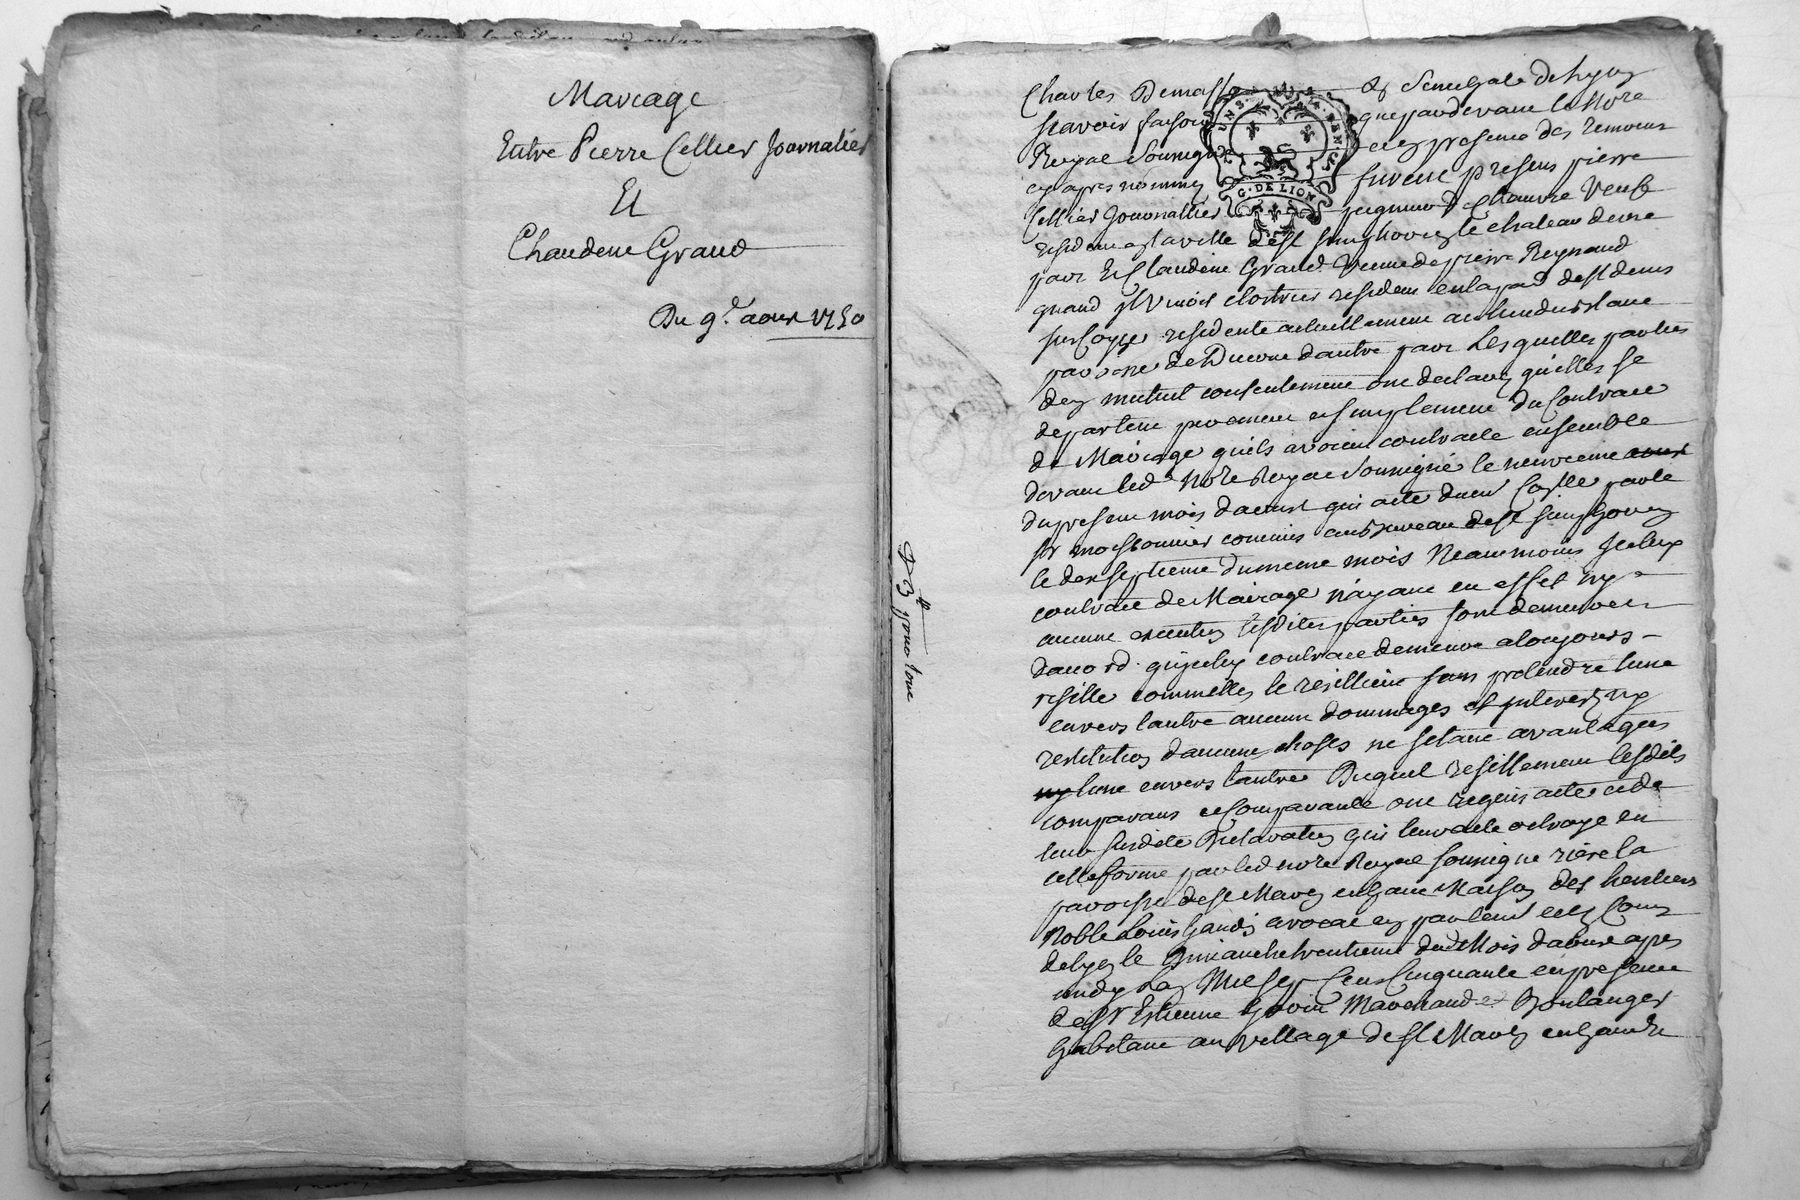 Mariage
Entre Pierre Cellier Journalier
Et
Claudine Grand
Du 9.e aoust 1750
Charles Demasse & Senechale de lyon
scavoir faisons que pardevant le Notre
Royal soussigné et en presence des temoins
cy apres nommes furent presens pierre
Cellier Journallier Veuf
resident en la ville de st simphorien le chateau dune
part Et Claudine Grand Veuve de pierre Reynaud
quand il vivoit resident en la par de st denis
sur Coyze residente actuellement au lieu du
parroisse de dautre part Les quelles parties
de mutuel consentement ont declaré quelles se
departent purement et simplement du Contract
de Mariage quils avoient contracte ensemble
devant led Notre Royal soussigné le neuvieme
du present mois daoust qui a ete par le
sr moissonnier commis au bureau de st simphorien
le dix septieme du meme mois Neanmoins Iceluy
contract de Mariage n'ayant eu effet ny
aucune execution lesdites parties sont demeurées
daccord qu'iceluy contract demeure a toujours
resillé comme elles le resillient sans pretendre lune
envers lautre aucuns dommages et interest ny
restitution d'aucunes choses ne setant avantagées
ny lune envers lautre Duquel resillement lesdits
comparans et Comparante ont requis acte et de
leur susdite Declaration qui leur a ete octroyé en
cette forme par led notre Royal soussigné riere la
parroisse de st Marcel en la Maison des heritiers
Noble Louis avocat en parlement et es Cours
de lyon le dimanche trentieme dud Mois d'aoust apres
midy Lan Mil sept Cens Cinquante en presence
de sr Estienne Marchand et Boulanger
habitant au village de st Marcel